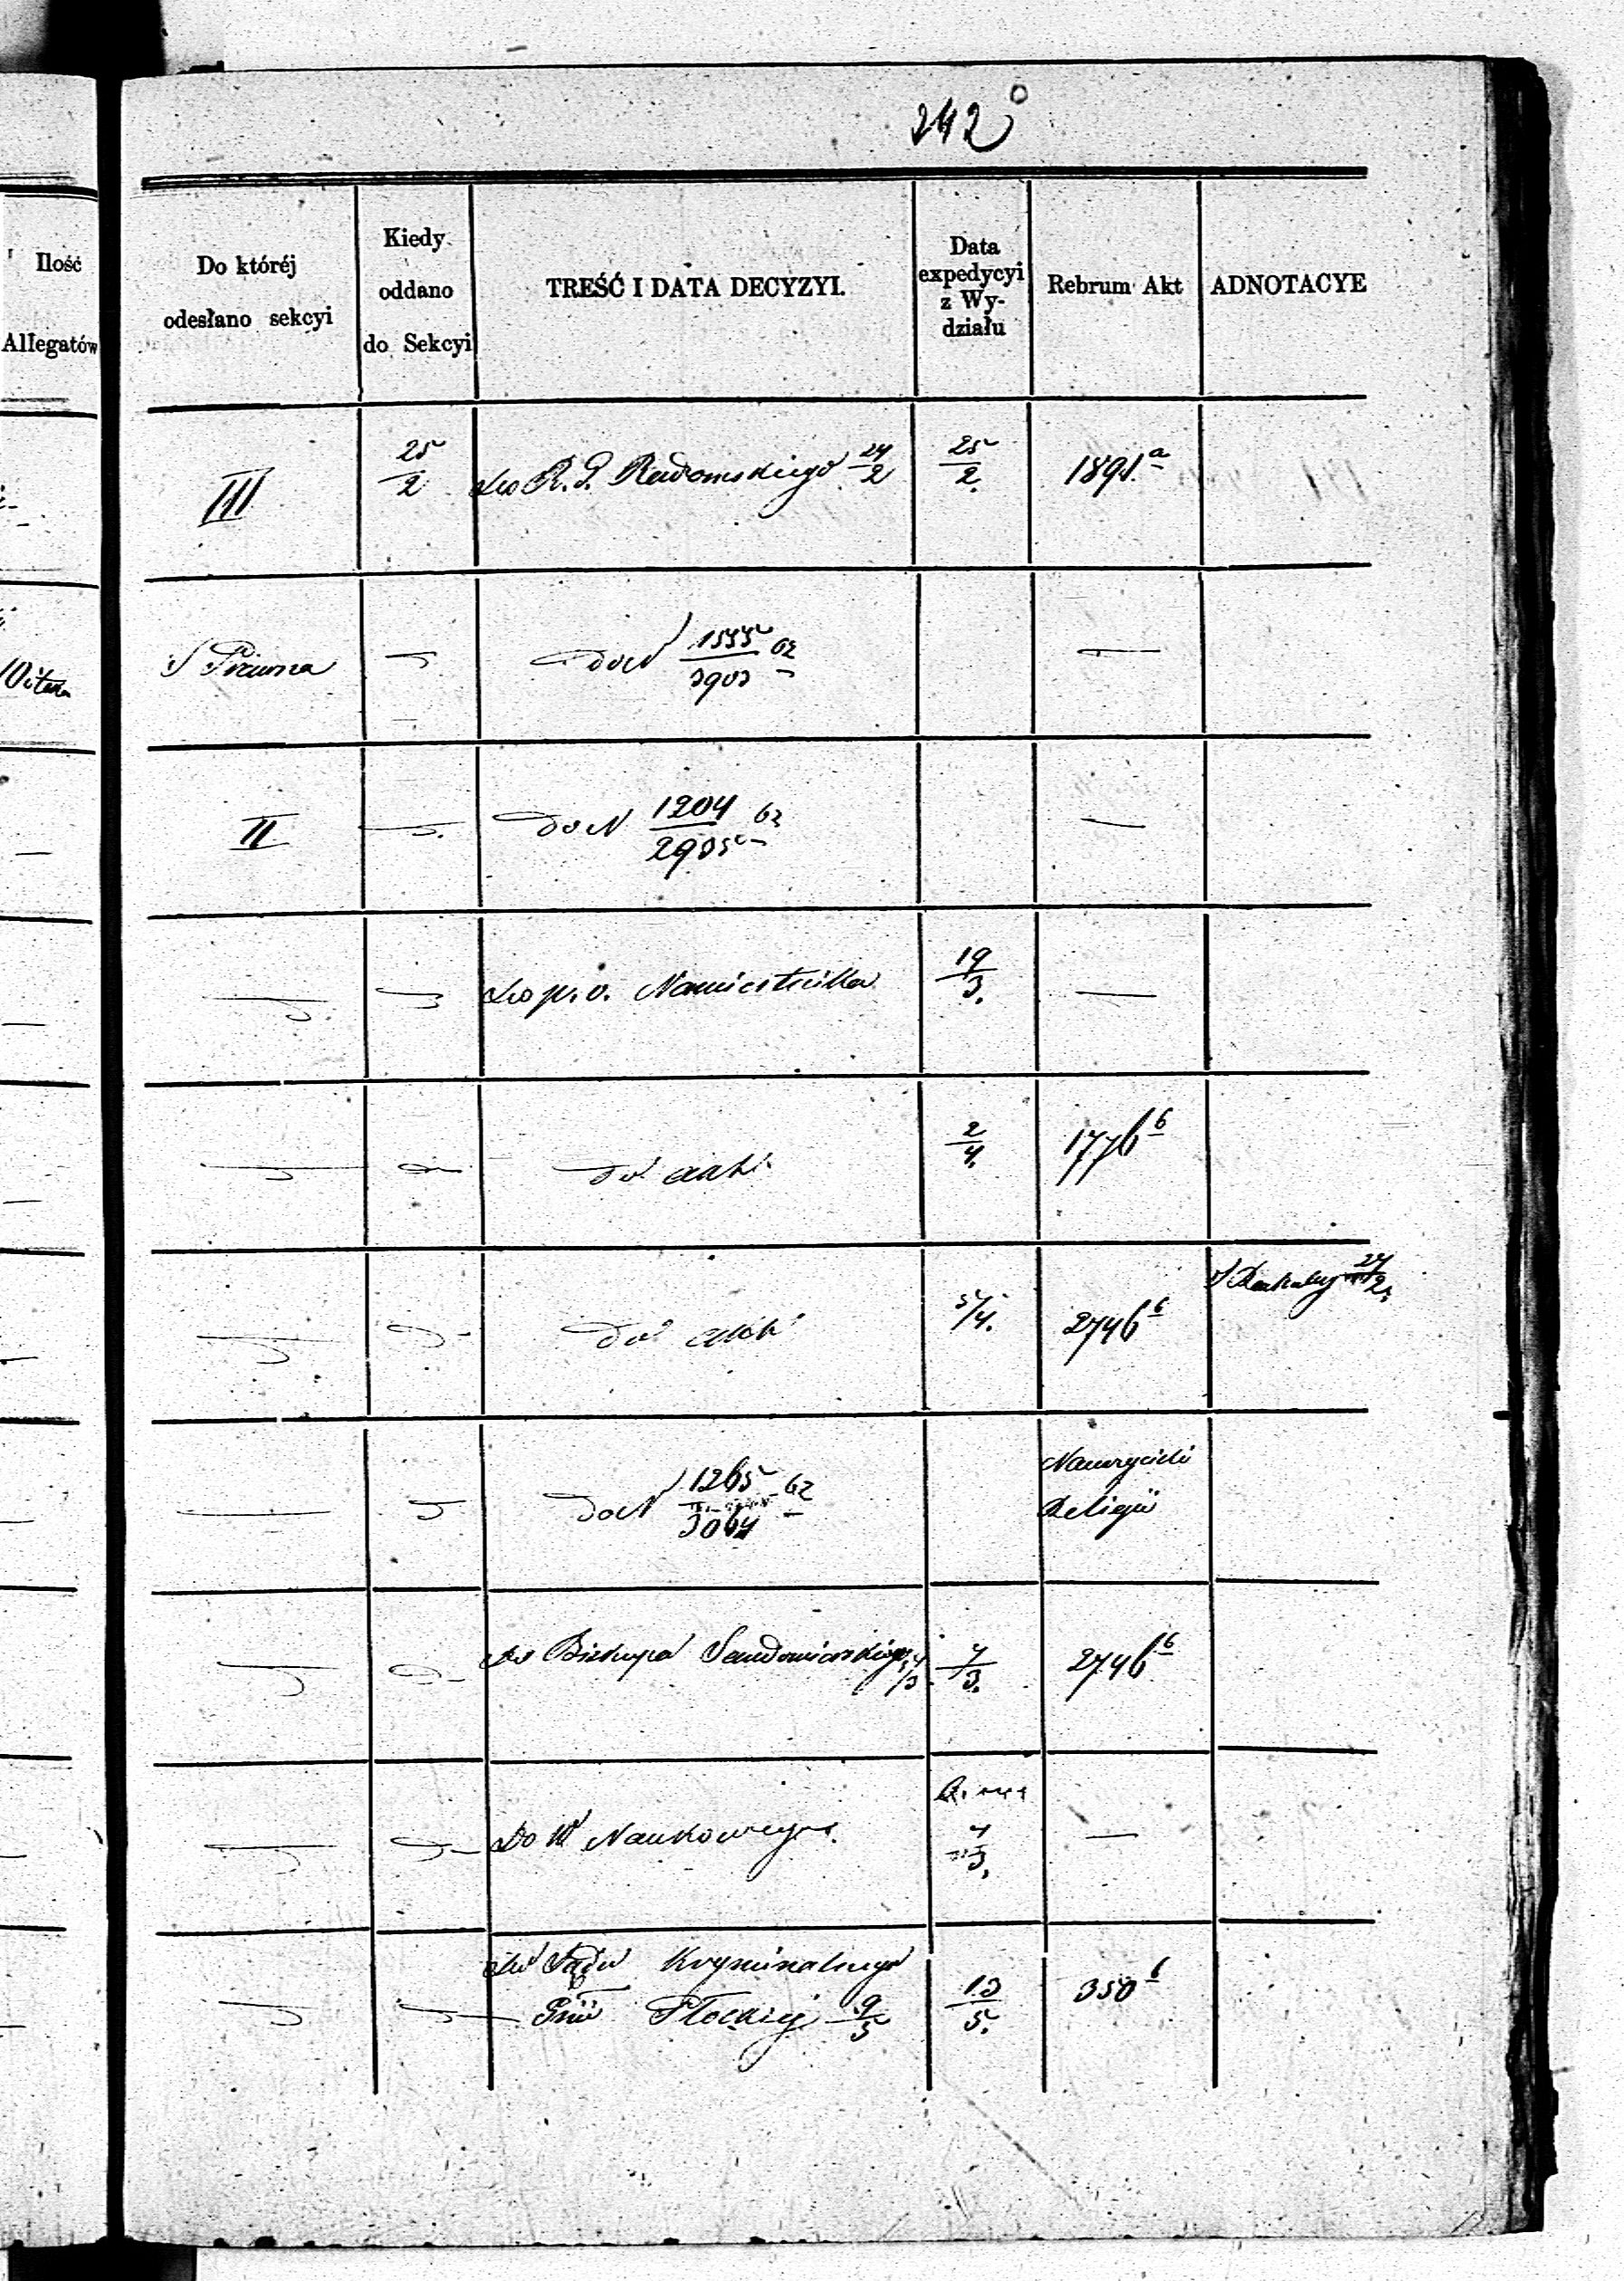 242
Ilość
Allegatów
Do któréj
odesłano sekcyi
Kiedy
oddano
do Sekcyi
TREŚĆ I DATA DECYZYI.
Data
expedycyi
z Wy-
działu
Rebrum Akt
ADNOTACYE
III
25/2
do R. G. Radomskiego 24/2
25/2.
1891.a
S Prawna
do N 1555/3903 62
II
do N 1204/2905 62
do p. o. Namiestnika
19/3.
do akt
2/4.
1776 b
do akt
5/4.
2746 b
27/2.
do N 1265/3064 62
Nauczyciele
Religii
do Biskupa Sandomierskiego 4/3
7/3.
2746 b
Do W Naukowego.
4/3.
do Sądu Kryminalnego
Gnii Płockiej 9/5
13/5.
350 b